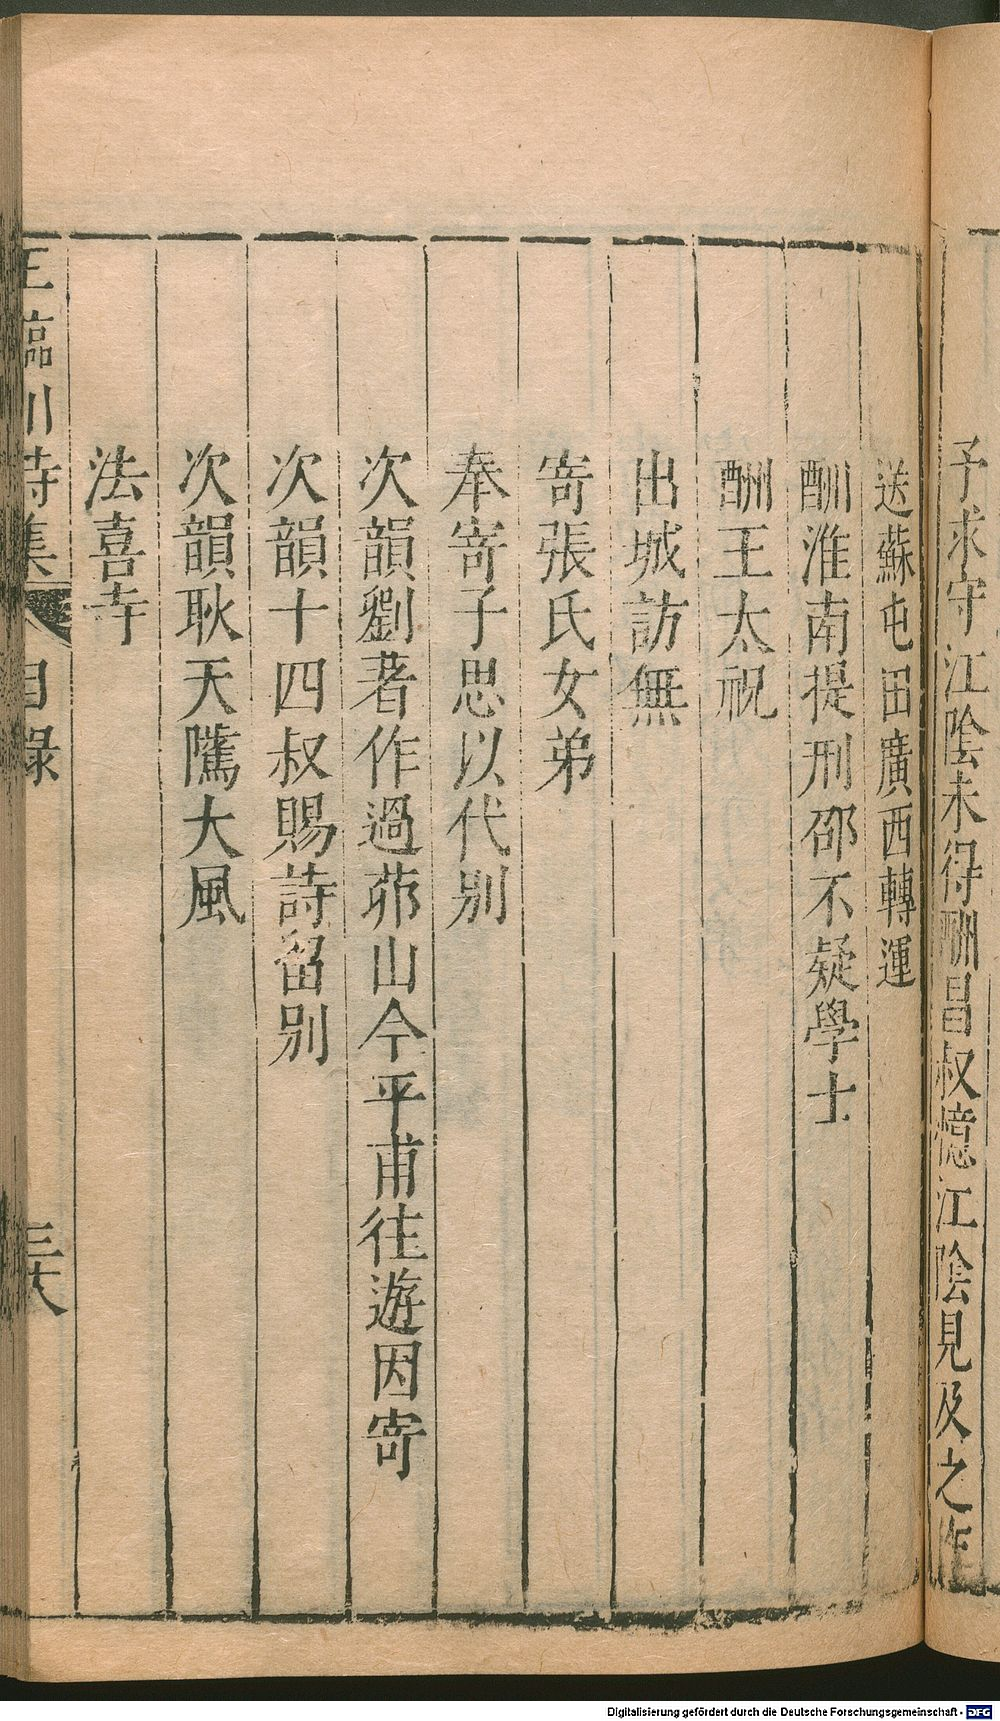 予求守江陰未得酬昌叔憶江陰見及之作
送蘇屯田廣西轉運
酬淮南提刑邵不疑學士
酬王太祝
出城訪無
寄張氏女弟
奉寄子思以代别
次韻劉著作過茆山今平甫往遊因寄
次韻十四叔賜詩留别
次韻耿天隲大風
法喜寺
王臨川詩集 目録 三十八
Digitalisierung gefördert durch die Deutsche Forschungsgemeinschaft - DFG